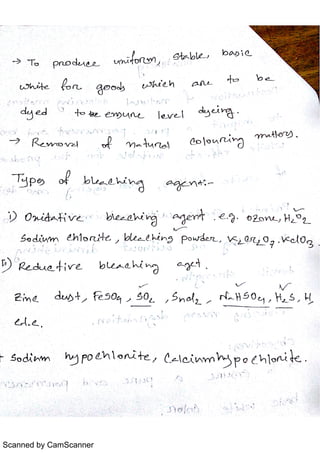 → To produce uniform, stable, basic
white for goods which are to be
dyed to ensure level dyeing.
→ Removal of natural colouring matters.
Types of bleaching agent:-
i) Oxidative bleaching agent. e.g. ozone, H2O2
Sodium chlorite, bleaching powder, K2Cr2O7, KClO3
ii) Reductive bleaching aget.
Zinc dust, FeSO4, SO2, SnCl2, NaHSO4, H2S, H2
Sodium hypochlorite, Calciumhypochlorite.
Scanned by CamScanner